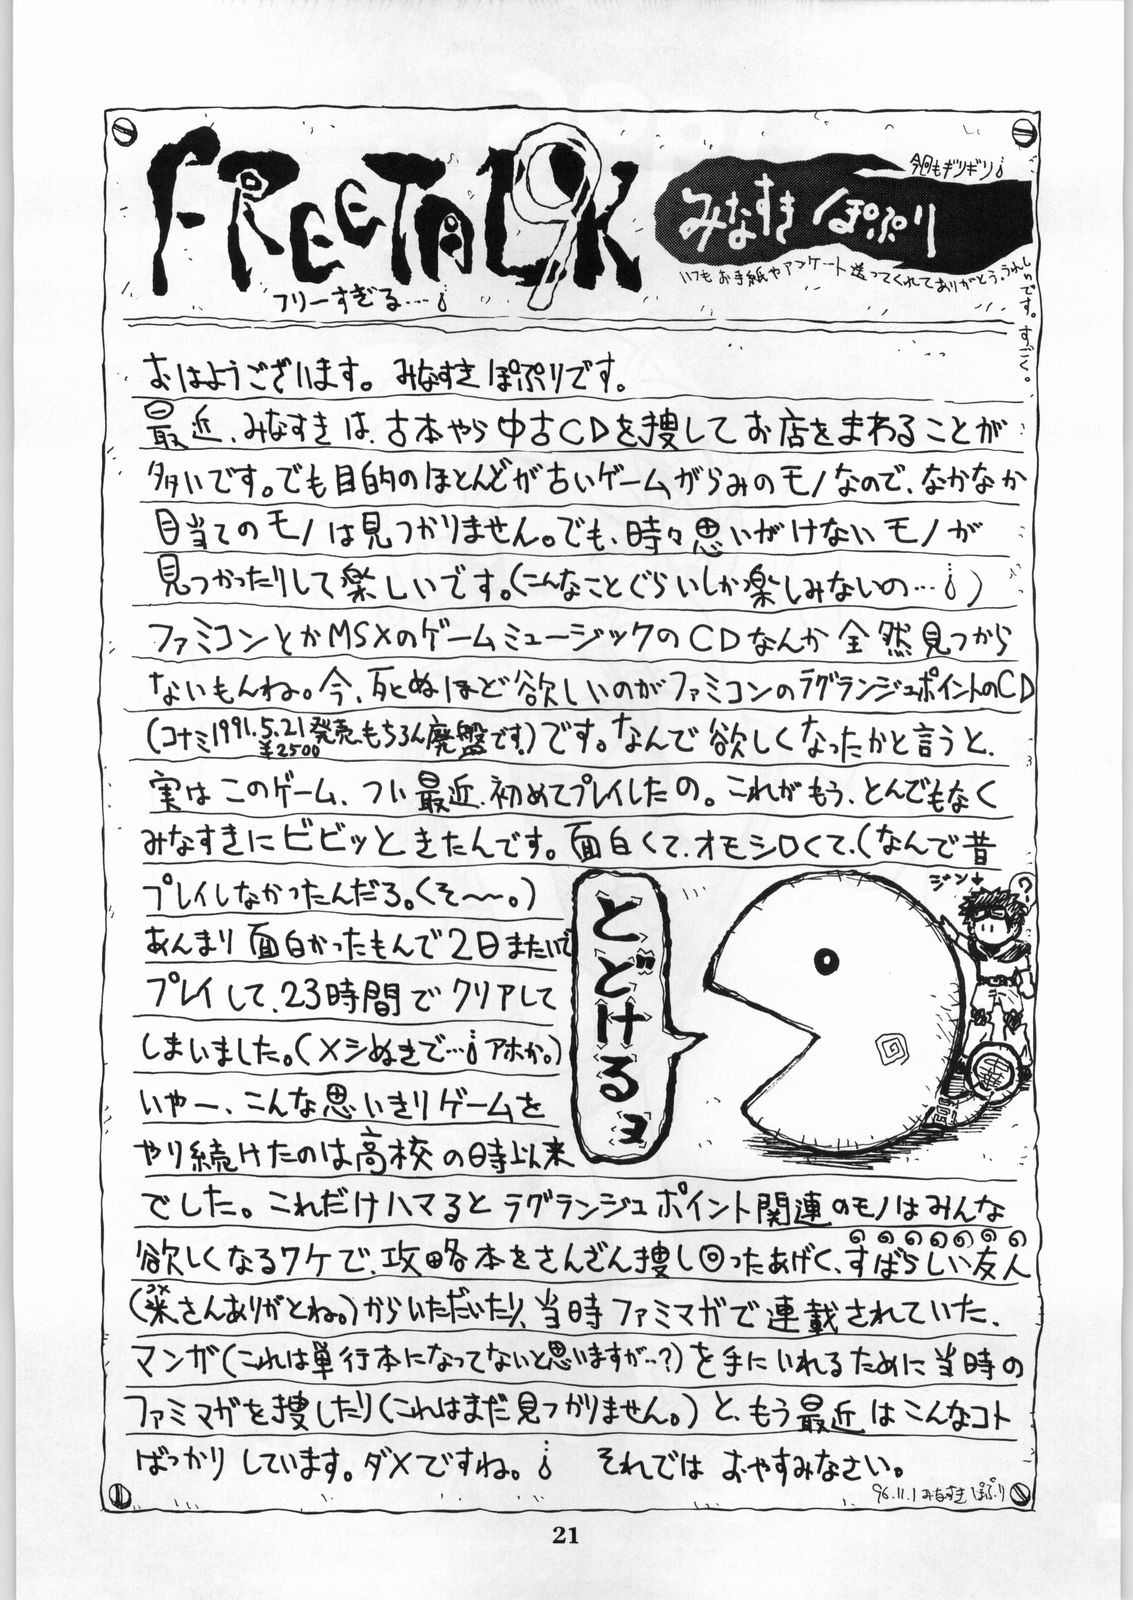 FREETALK 9
フリーすぎる…
みなすき ぽぷり
今回もギリギリ
いつもお手紙やアンケート送ってくれてありがとう。うれしいです。すごく。
おはようございます。みなすき ぽぷりです。
最近、みなすきは、古本やら中古CDを捜してお店をまわることが
多いです。でも目的のほとんどが古いゲームがらみのモノなので、なかなか
目当てのモノは見つかりません。でも、時々思いがけないモノが
見つかったりして楽しいです。(こんなことぐらいしか楽しみないの…)
ファミコンとかMSXのゲームミュージックのCDなんか全然見つから
ないもんね。今、死ぬほど欲しいのがファミコンのラグランジュポイントのCD
(コナミ1991.5.21発売¥2500もちろん廃盤です。)です。なんで欲しくなったかと言うと、
実はこのゲーム、つい最近、初めてプレイしたの。これがもう、とんでもなく
みなすきにビビッときたんです。面白くて、オモシロくて、(なんで昔
プレイしなかったんだろ。くそ〜〜。)
あんまり面白かったもんで2日またいで
プレイして、23時間でクリアして
しまいました。(メシぬきで…アホか。)
いやー、こんな思いきりゲームを
やり続けたのは高校の時以来
でした。これだけハマるとラグランジュポイント関連のモノはみんな
欲しくなるワケで、攻略本をさんざん捜し回ったあげく、すばらしい友人
(米さんありがとね。)からいただいたり、当時ファミマガで連載されていた、
マンガ(これは単行本になってないと思いますが…?)を手にいれるために当時の
ファミマガを捜したり(これはまだ見つかりません。)と、もう最近はこんなコト
ばっかりしています。ダメですね。 それでは おやすみなさい。
とどけるヨ
ジン
?
96.11.1 みなすき ぽぷり
21